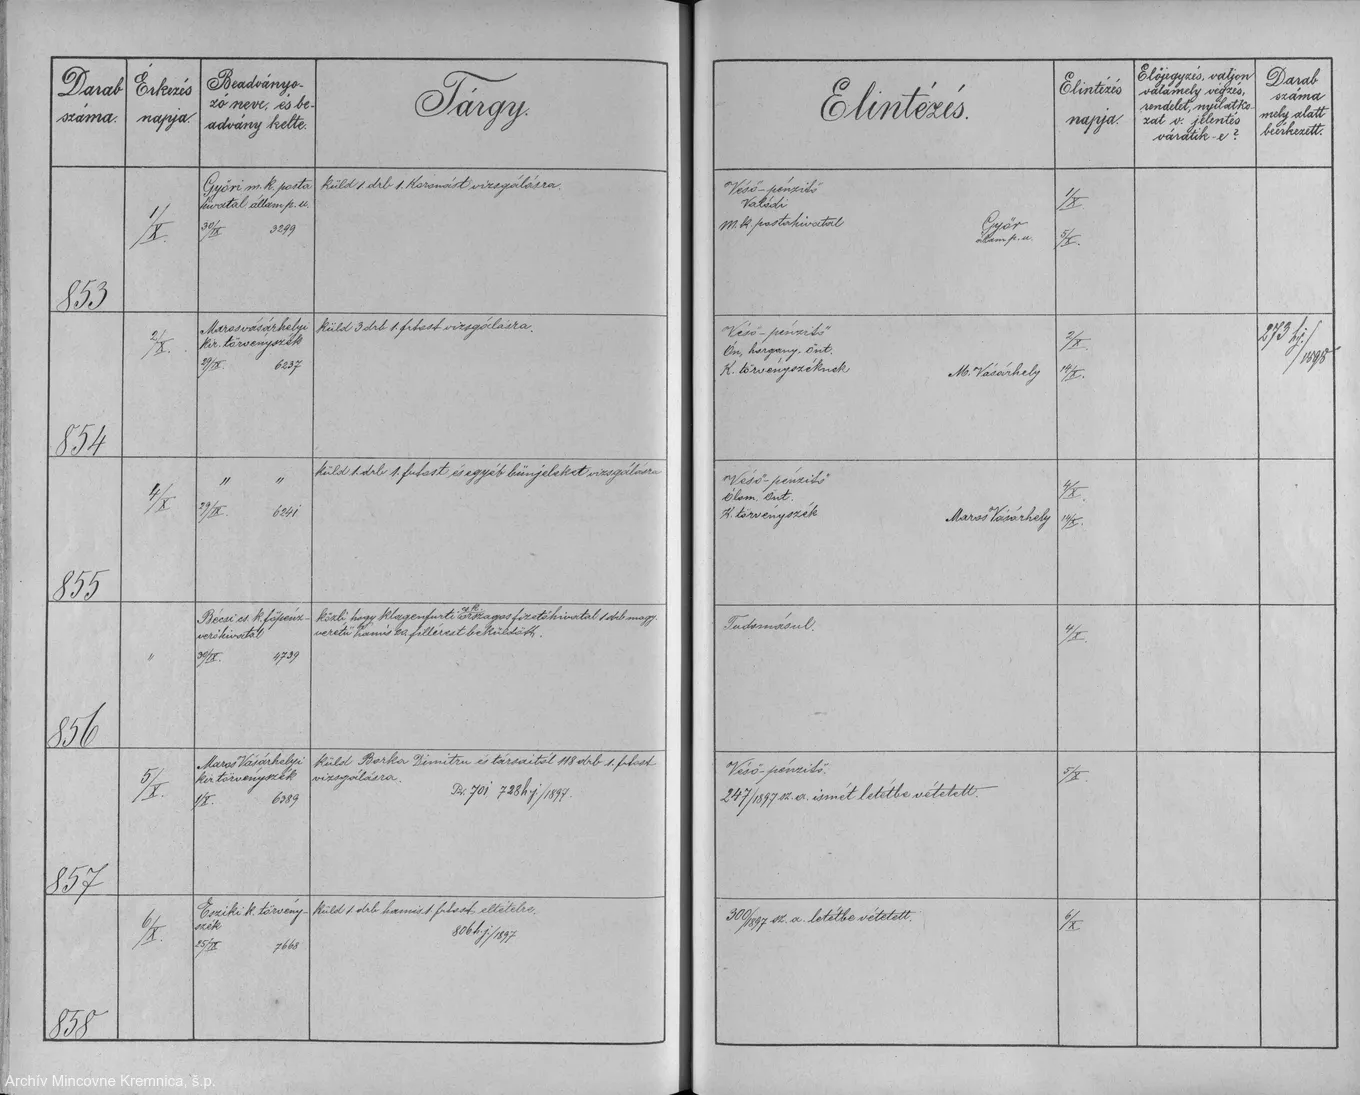 Darab
száma.
Érkezés
napja.
Beadványo-
zó neve, és be-
advány kelte.
Tárgy.
Elintézés.
Elintézés
napja.
Előjegyzés, valjon
valamely végzés,
rendelet, nyilatko-
zat v. jelentés
váratik-e?
Darab
száma
mely alatt
beérkezett.
853
1/X.
Győri m. k. posta
hivatal állam p. u.
30/IX 3299
küld 1 drb 1. Koronást vizsgálásra.
"Véső-pénzitő
Valódi
M. k. postahivatal Győr
állam p. u.
1/X
5/X.
854
2/X.
Marosvásárhelyi
kir. törvényszék
29/IX. 6237
küld 3 drb 1. frtost vizsgálásra.
"Véső-pénzitő"
Ón, horgany. Önt.
K. törvényszéknek M. Vásárhely
2/X.
14/X.
273 hj/
1898
855
4/X.
" "
29/IX. 6241
küld 1 drb 1. frtost és egyéb bünjeleket vizsgálásra
"Véső-pénzitő
Ólom. Önt.
K. törvényszék Maros Vásárhely
4/X.
14/X.
856
"
Bécsi cs. k. főpénz-
verőhivatal
30/IX. 4739
közli, hogy klagenfurti országos fizetőhivatal 1 drb magy.
veretű hamis 20 fillérest beküldött.
Tudomásul.
4/X.
857
5/X.
Maros Vásárhelyi
kir. törvényszék
1/X. 6389
küld Barka Dimitru és társaitól 118 drb 1. frtost
vizsgálásra.
701 728 hj/1897.
Véső-pénzitő.
247/1897 sz. a. ismét letétbe vétetett.
5/X.
858
6/X.
k. törvény-
szék
25/IX 7668
küld 1 drb hamis 1 frtost eltételre.
806 hj/1897
300/1897 sz. a. letétbe vétetett.
6/X
Archív Mincovne Kremnica, š.p.